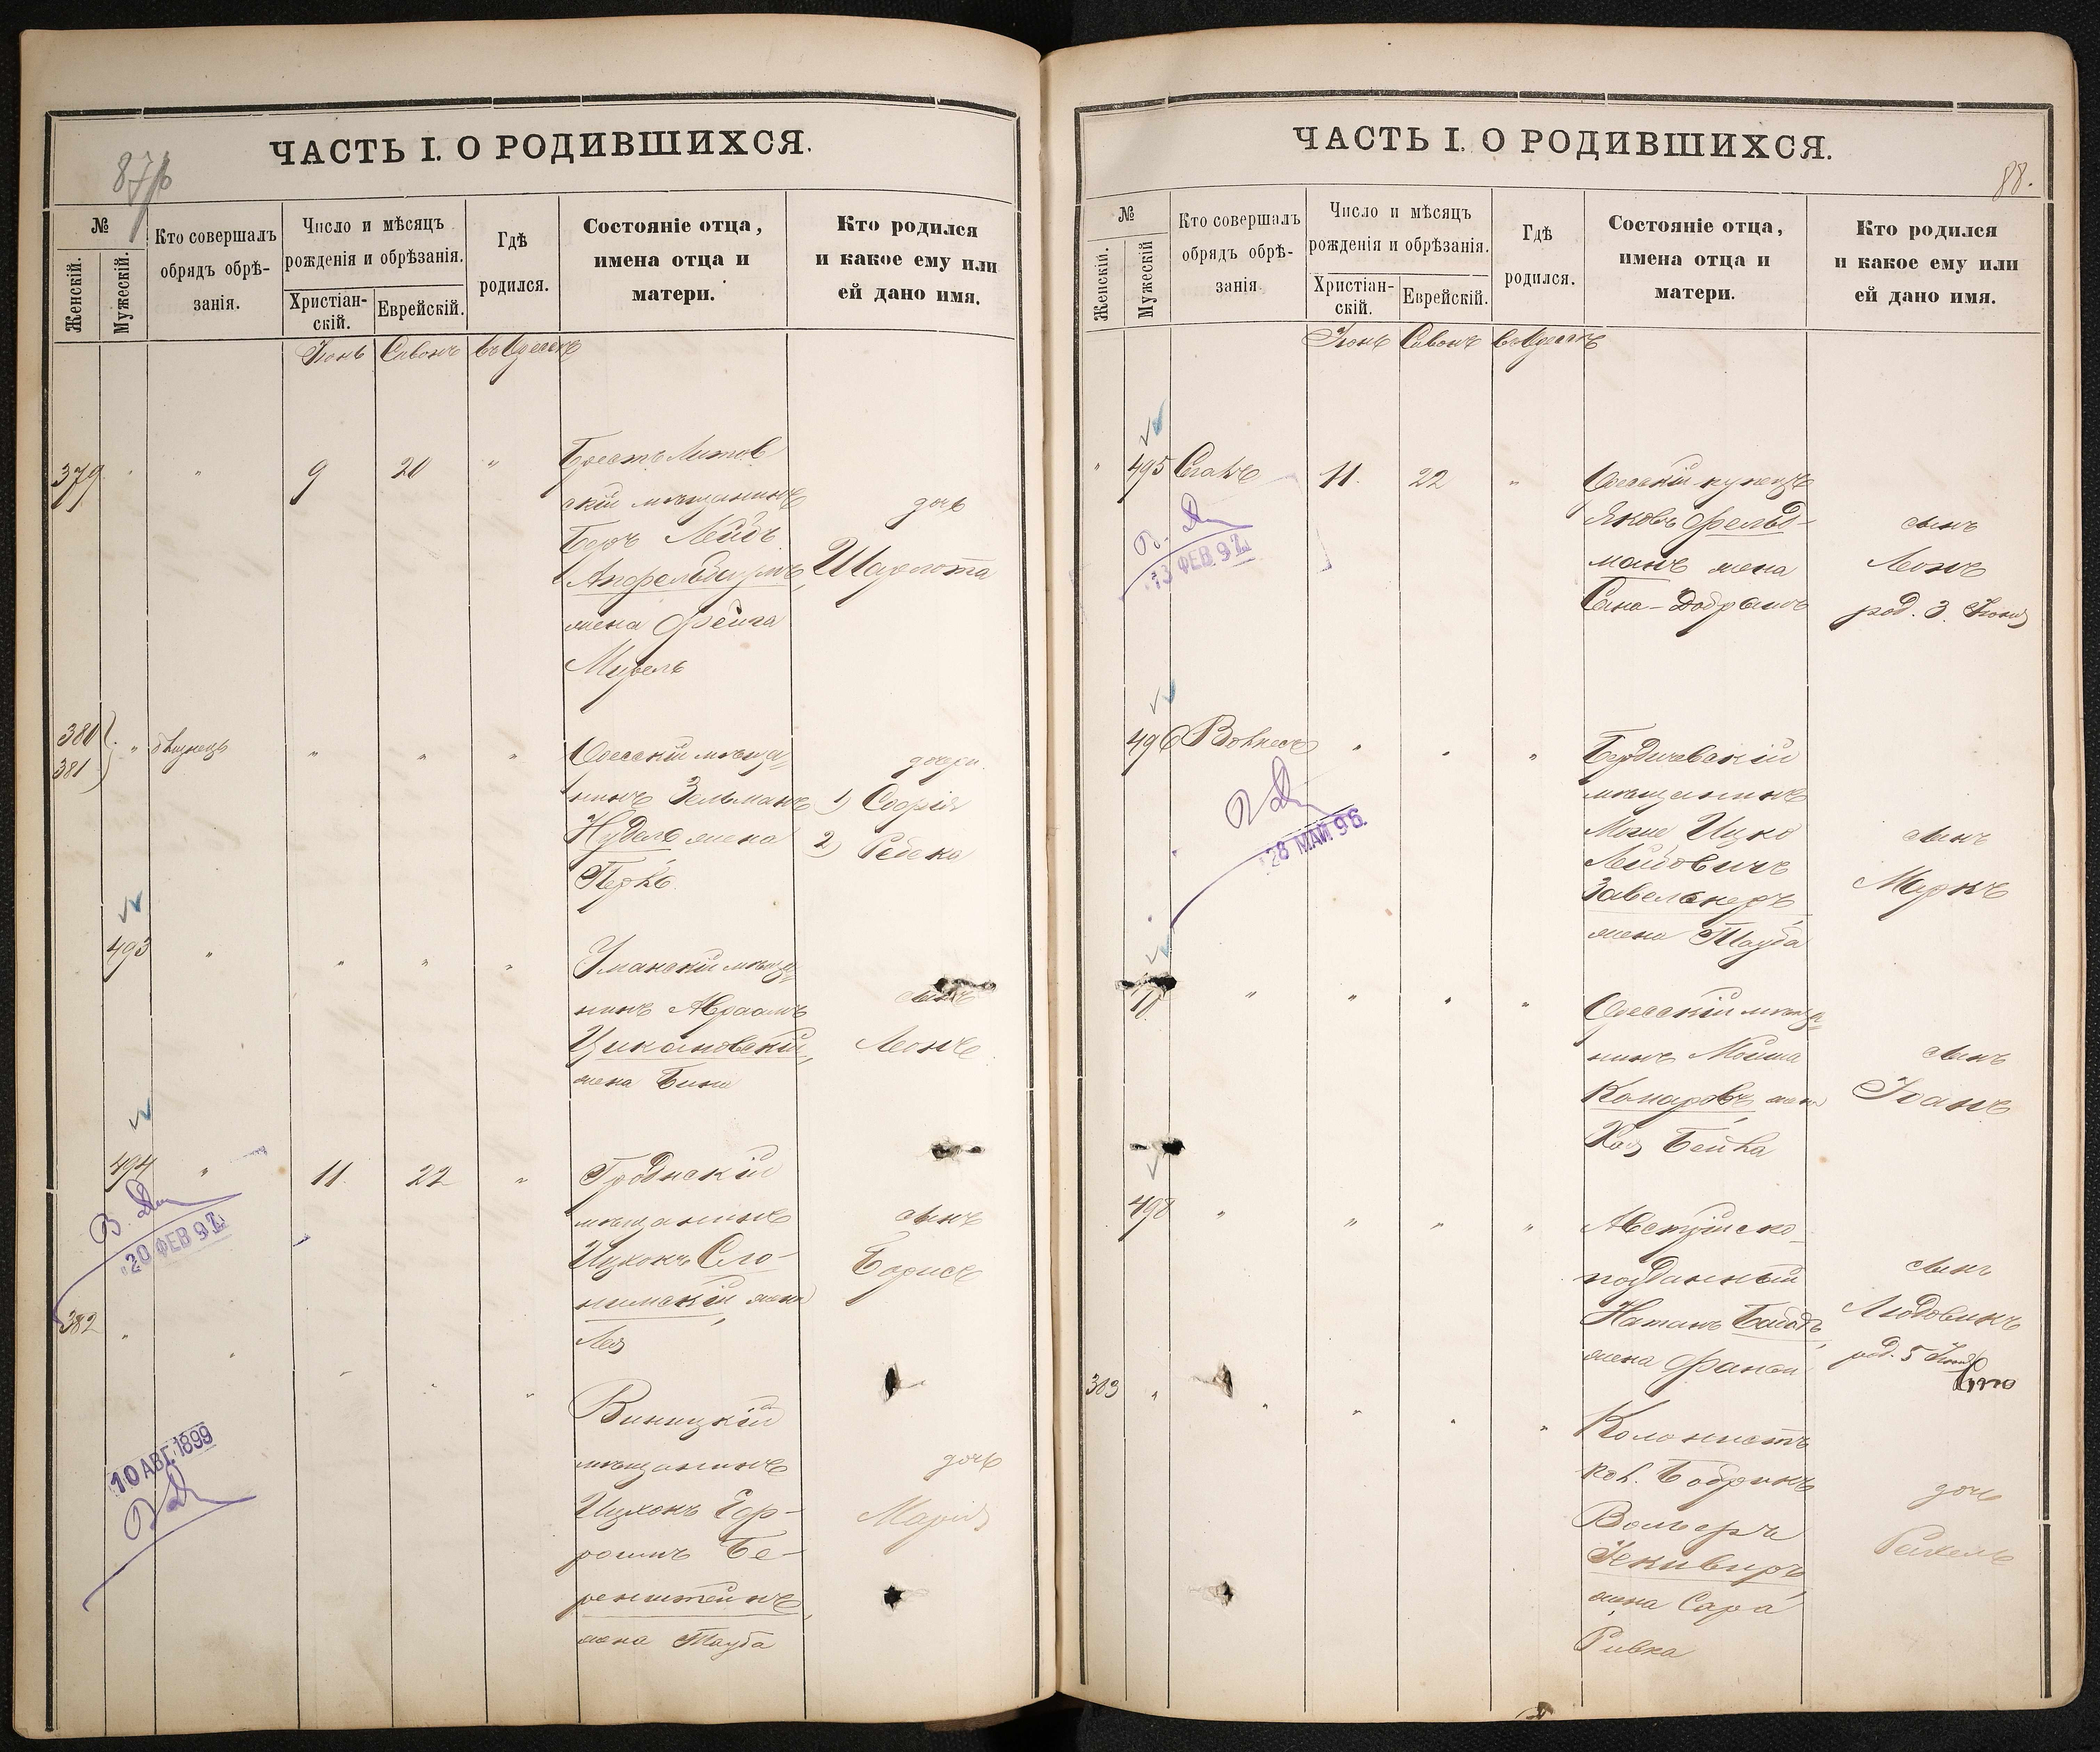 87/б
ЧАСТЬ I. О РОДИВШИХСЯ.
№
Женскій.
Мужескій.
Кто совершалъ
обрядъ обрѣ-
занія.
Число и мѣсяцъ
рожденія и обрѣзанія.
Христіан-
скій.
Еврейскій.
Гдѣ
родился.
Состояніе отца,
имена отца и
матери.
Кто родился
и какое ему или
ей дано имя.
Іюнь Сивонъ въ Одессѣ
379 " " 9 20 "
Брестъ Литов
скій мѣщанинъ
Беръ Лейбъ
Апфельбаумъ,
жена Фейга
Мирель
дочь
Шарлота
380
381
" " " "
Одесскій мѣща-
нинъ Зельманъ
Нудель, жена
Перль
дочери
1) Софія
2) Ребека
493 " " " "
Уманскій мѣща-
нинъ Абрамъ
Цикановскій,
жена Бина
сынъ
Леонъ
494 " 11 22 "
Гродскій
мѣщанинъ
Ицхокъ Сло-
нимскій, жена
Лея
сынъ
Борисъ
В.
20 ФЕВ 97
382 " " " " "
Виницкій
мѣщанинъ
Ицхокъ Гер-
шинъ Бе-
ренштейнъ,
жена Тауба
дочь
Марія
10 АВГ. 1899
88.
ЧАСТЬ I. О РОДИВШИХСЯ.
№
Женскій.
Мужескій
Кто совершалъ
обрядъ обрѣ-
занія.
Число и мѣсяцъ
рожденія и обрѣзанія.
Христіан-
скій.
Еврейскій.
Гдѣ
родился.
Состояніе отца,
имена отца и
матери.
Кто родился
и какое ему или
ей дано имя.
Іюнь Сивонъ въ Одессѣ
" 495 11. 22 "
Одесскій купецъ
Яковъ Фельд-
манъ жена
сынъ
Леонъ
род. 3 Іюня
13 ФЕВ 97
496 " " "
Бердичевскій
мѣщанинъ
Ицко
Лейбовичъ
жена Тауба
сынъ
Маркъ
28 МАЙ 96.
" " " "
Одесскій мѣща-
нинъ Мойша
Комаровъ, жена
Хая Бейла
сынъ
Іоанъ
498 " " " "
Австрійско-
подданный
Натанъ
жена Фанни
сынъ
Людовикъ
род. 5 Іюня
383 " " " " "
Колонистъ
кол. Бобрикъ
Вольеръ
жена Сара
Ривка
дочь
Рахель